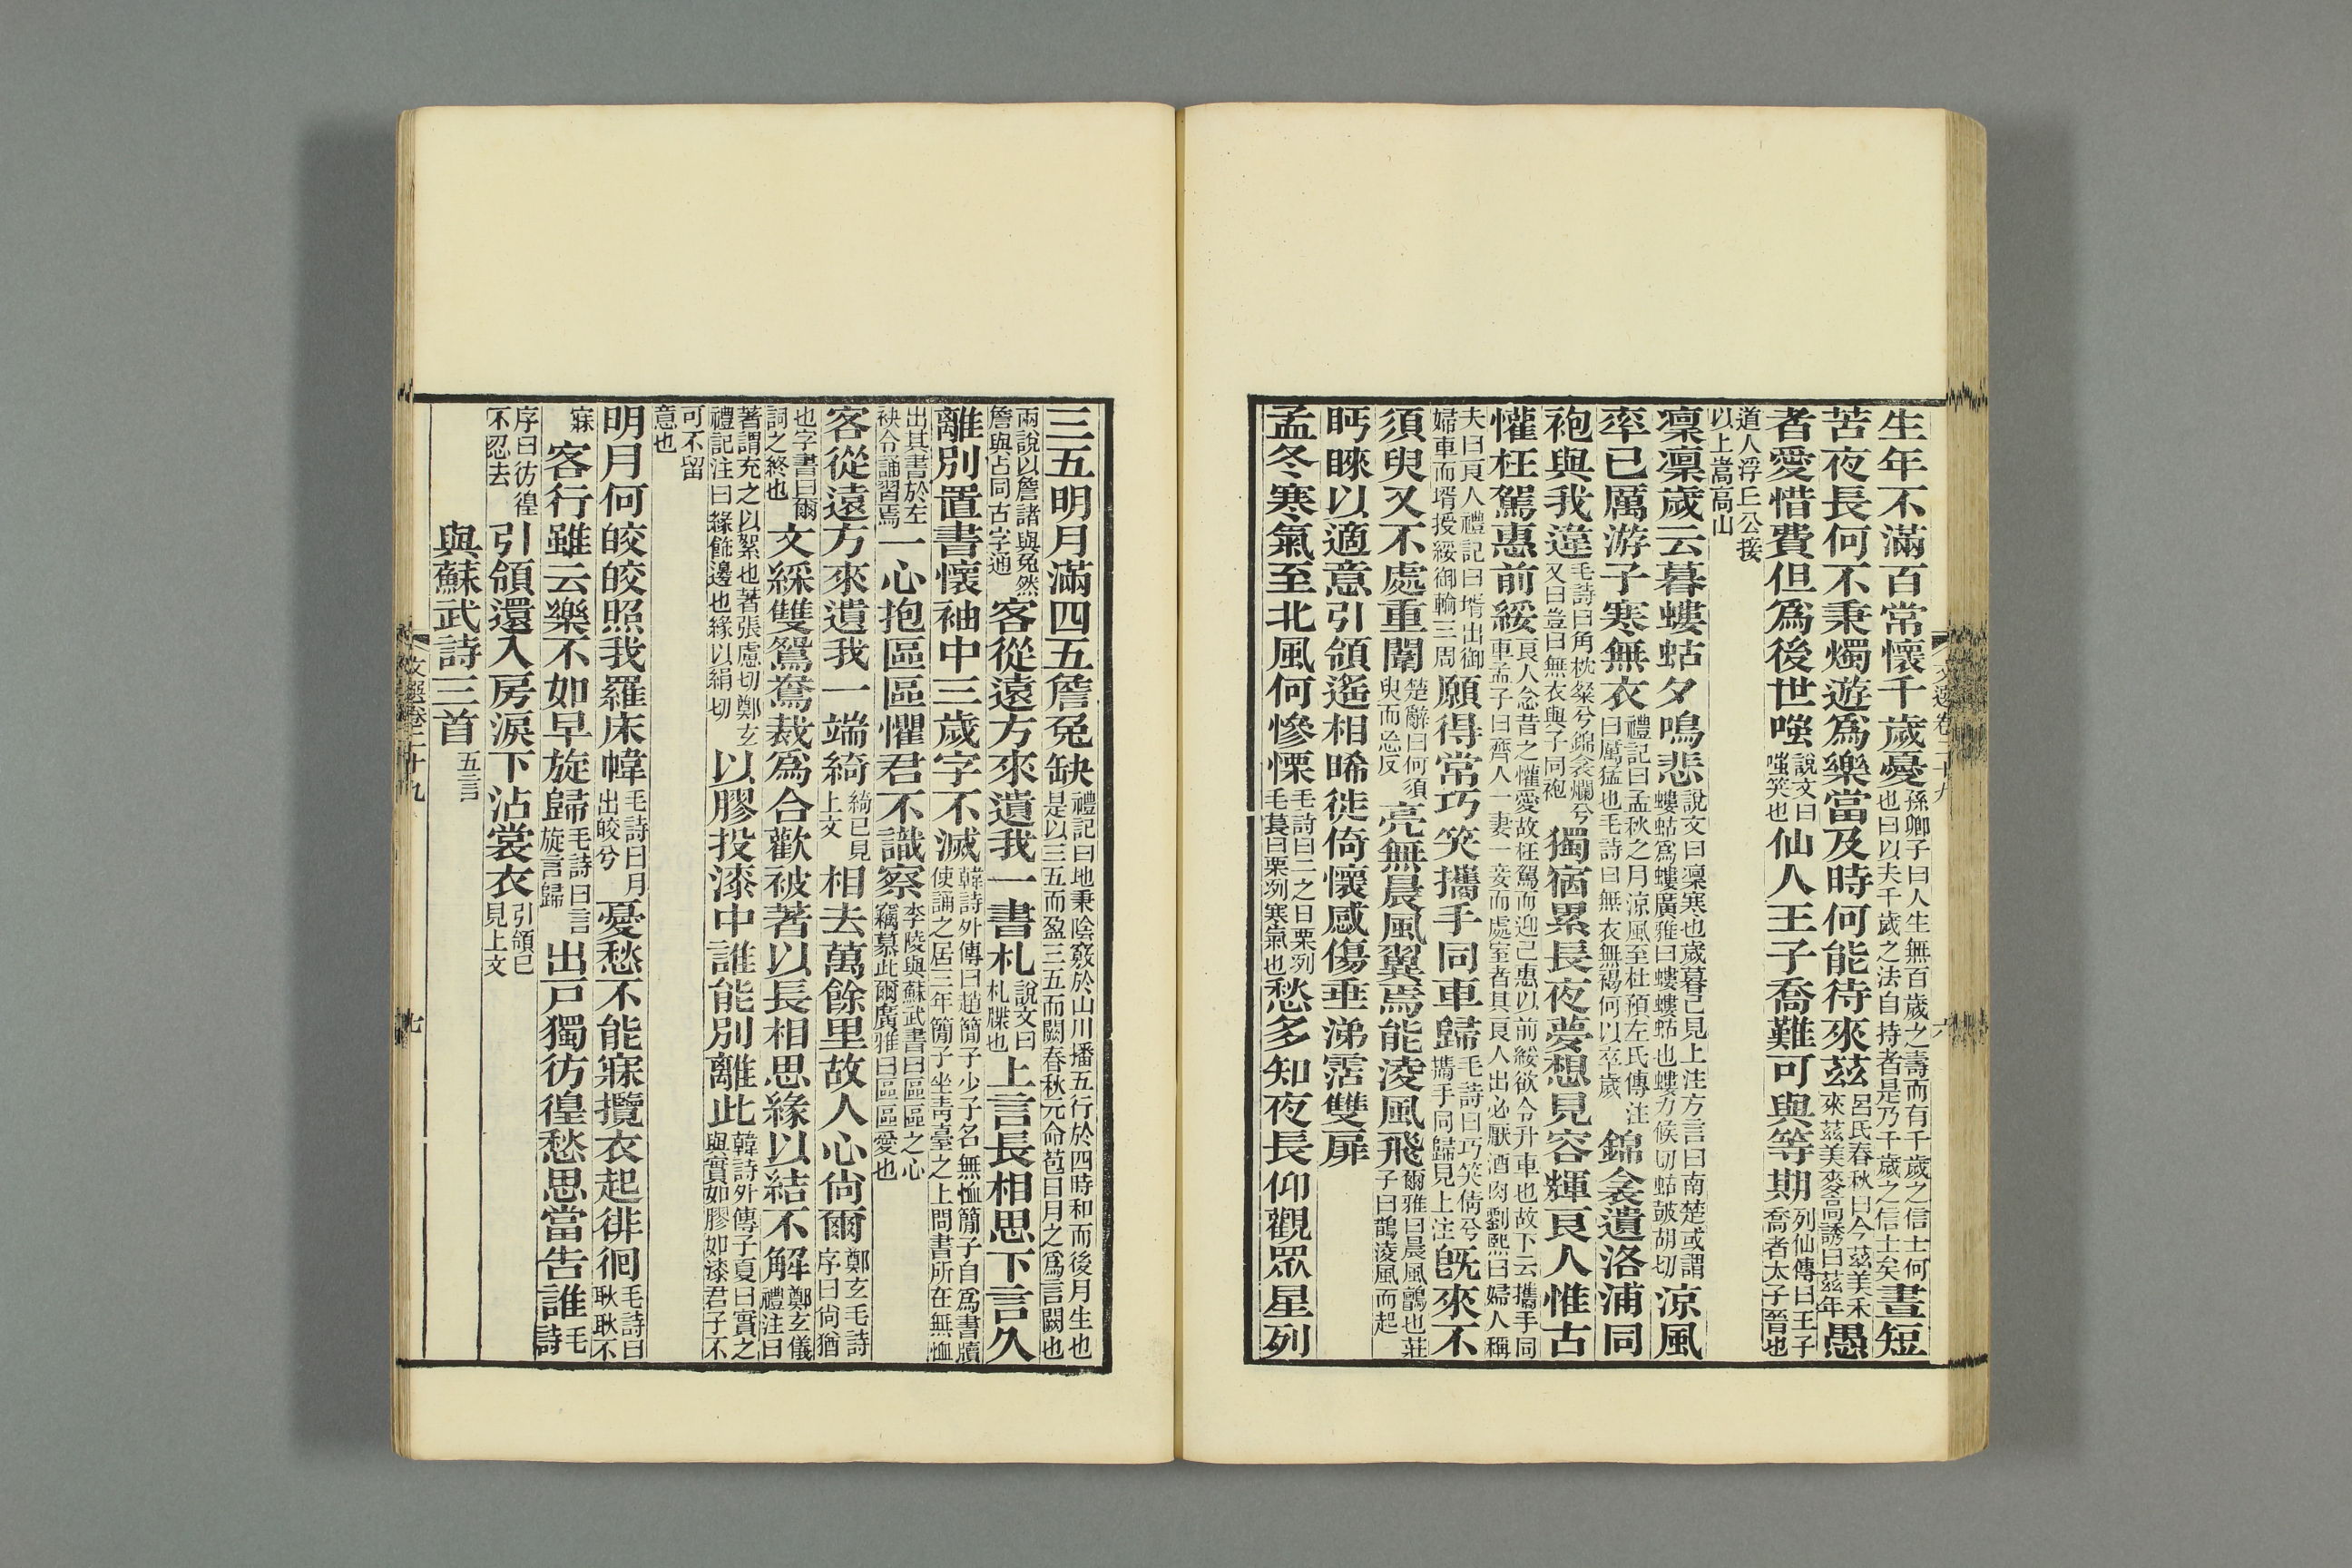 文選卷二十九
六
生年不滿百常懷千歲憂孫卿子曰人生無百歲之壽而有千歲之信士何也曰以夫千歲之法自持者是乃千歲之信士矣晝短
苦夜長何不秉燭遊爲樂當及時何能待來茲呂氏春秋曰今茲美禾來茲美麥高誘曰茲年愚
者愛惜費但爲後世嗤說文曰嗤笑也仙人王子喬難可與等期列仙傳曰王子喬者太子晉也
道人浮丘公接以上嵩高山
凜凜歲云暮螻蛄夕鳴悲說文曰凜寒也歲暮已見上注方言曰南楚或謂螻蛄爲螻廣雅曰螻螻蛄也螻力候切蛄鼓胡切涼風
率已厲游子寒無衣禮記曰孟秋之月涼風至杜預左氏傳注曰厲猛也毛詩曰無衣無褐何以卒歲錦衾遺洛浦同
袍與我違毛詩曰角枕粲兮錦衾爛兮又曰豈曰無衣與子同袍獨宿累長夜夢想見容輝良人惟古
懽枉駕惠前綏良人念昔之懽愛故枉駕而迎己惠以前綏欲令升車也故下云攜手同車孟子曰齊人一妻一妾而處室者其良人出必厭酒肉劉熙曰婦人稱
夫曰良人禮記曰壻出御婦車而壻授綏御輪三周願得常巧笑攜手同車歸毛詩曰巧笑倩兮攜手同歸見上注旣來不
須臾又不處重闈楚辭曰何須臾而忘反亮無晨風翼焉能淩風飛爾雅曰晨風鸇也莊子曰鵲淩風而起
眄睞以適意引領遙相睎徙倚懷感傷垂涕霑雙扉
孟冬寒氣至北風何慘慄毛詩曰二之日栗列毛萇曰栗冽寒氣也愁多知夜長仰觀眾星列
三五明月滿四五詹兔缺禮記曰地秉陰竅於山川播五行於四時和而後月生也是以三五而盈三五而闕春秋元命苞曰月之爲言闕也
兩說以詹諸與兔然詹與占同古字通客從遠方來遺我一書札說文曰札牒也上言長相思下言久
離別置書懷袖中三歲字不滅韓詩外傳曰趙簡子少子名無恤簡子自爲書牘使誦之居三年簡子坐青臺之上問書所在無恤
出其書於左袂令誦習焉一心抱區區懼君不識察李陵與蘇武書曰區區之心竊慕此爾廣雅曰區區愛也
客從遠方來遺我一端綺綺已見上文相去萬餘里故人心尙爾鄭玄毛詩序曰尙猶
也字書曰爾詞之終也文綵雙鴛鴦裁爲合歡被著以長相思緣以結不解鄭玄儀禮注曰
著謂充之以絮也著張慮切鄭玄禮記注曰緣飾邊也緣以絹切以膠投漆中誰能別離此韓詩外傳子夏曰實之與實如膠如漆君子不
可不留意也
明月何皎皎照我羅床幃毛詩曰月出皎兮憂愁不能寐攬衣起徘徊毛詩曰耿耿不
寐客行雖云樂不如早旋歸毛詩曰言旋言歸出戶獨彷徨愁思當告誰毛詩
序曰彷徨不忍去引領還入房淚下沾裳衣引領已見上文
與蘇武詩三首五言
文選卷二十九
七